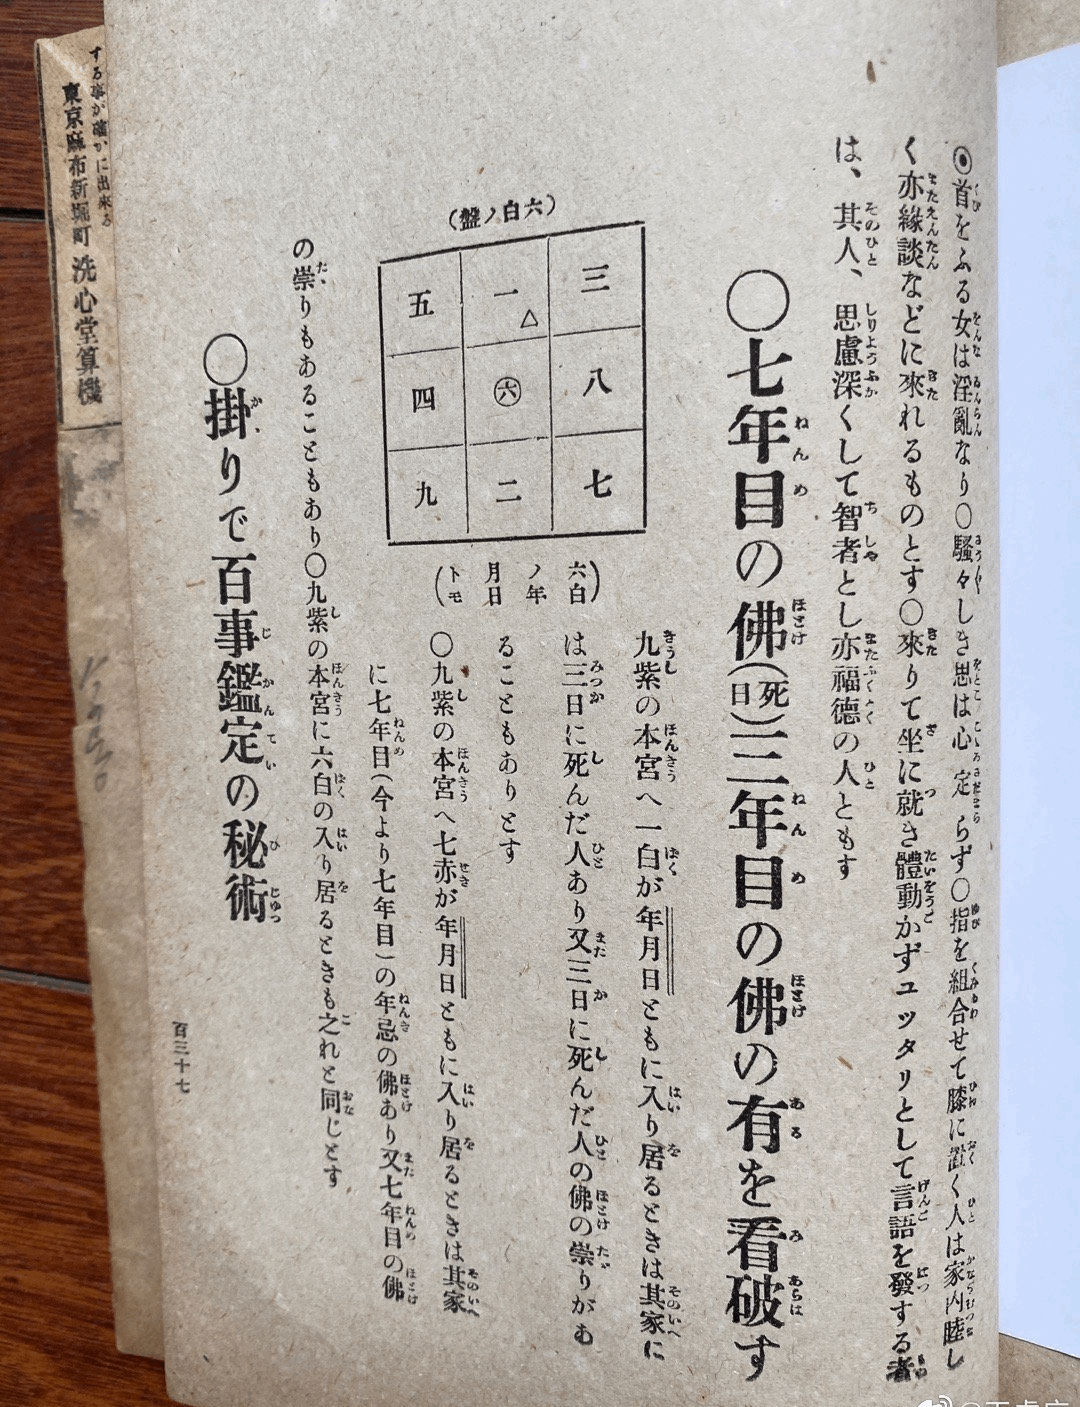 ◉首をふる女は淫亂なり〇騷々しき思は心定らず〇指を組合せて膝に置く人は家内睦し
く亦緣談などに來れるものとす〇來りて坐に就き體動かずユッタリとして言語を發する者
は、其人、思慮深くして智者とし亦福德の人ともす
〇七年目の佛(死日)三年目の佛の有を看破す
(六白ノ盤)
三 一△ 五
八 ㊅ 四
七 二 九
(六白ノ年月日トモ)
九紫の本宮へ一白が年月日ともに入り居るときは其家に
は三日に死んだ人あり又三日に死んだ人の佛の崇りがあ
ることもありとす
〇九紫の本宮へ七赤が年月日ともに入り居るときは其家
に七年目(今より七年目)の年忌の佛あり又七年目の佛
の崇りもあることもあり〇九紫の本宮に六白の入り居るときも之れと同じとす
〇掛りで百事鑑定の秘術
百三十七
する事が確かに出來る
東京麻布新堀町 洗心堂算機